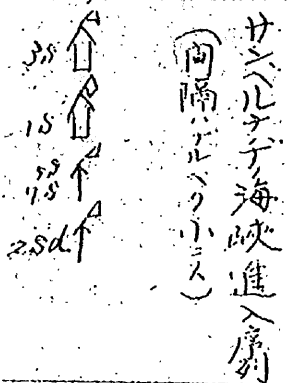 サンベルナデノ海峡進入序列
(間隔ハナルベク小ニス)
3S
1S
5S
7S
2Sd.